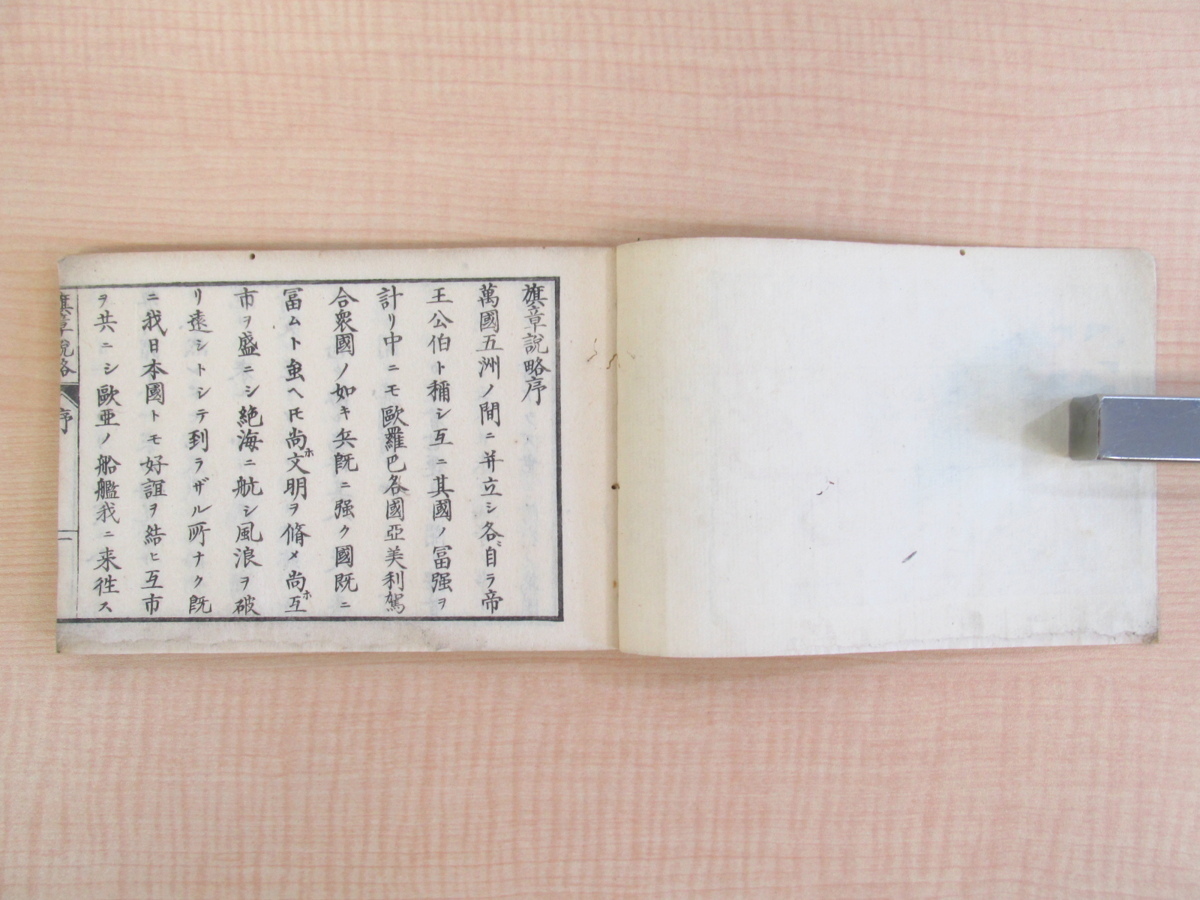 旗章說略序
萬國五洲ノ間ニ并立シ各自ラ帝
王公伯ト稱シ互ニ其國ノ冨强ヲ
計リ中ニモ歐羅巴各國亞美利駕
合衆國ノ如キ兵既ニ强ク國既ニ
冨ムト虽ヘ𪜈尚ホ文明ヲ脩メ尚ホ互
市ヲ盛ニシ絶海ニ航シ風浪ヲ破
リ遠シトシテ到ラザル所ナク既
ニ我日本國トモ好誼ヲ結ヒ互市
ヲ共ニシ歐亞ノ船艦我ニ来徃ス
旗章說略 序 一